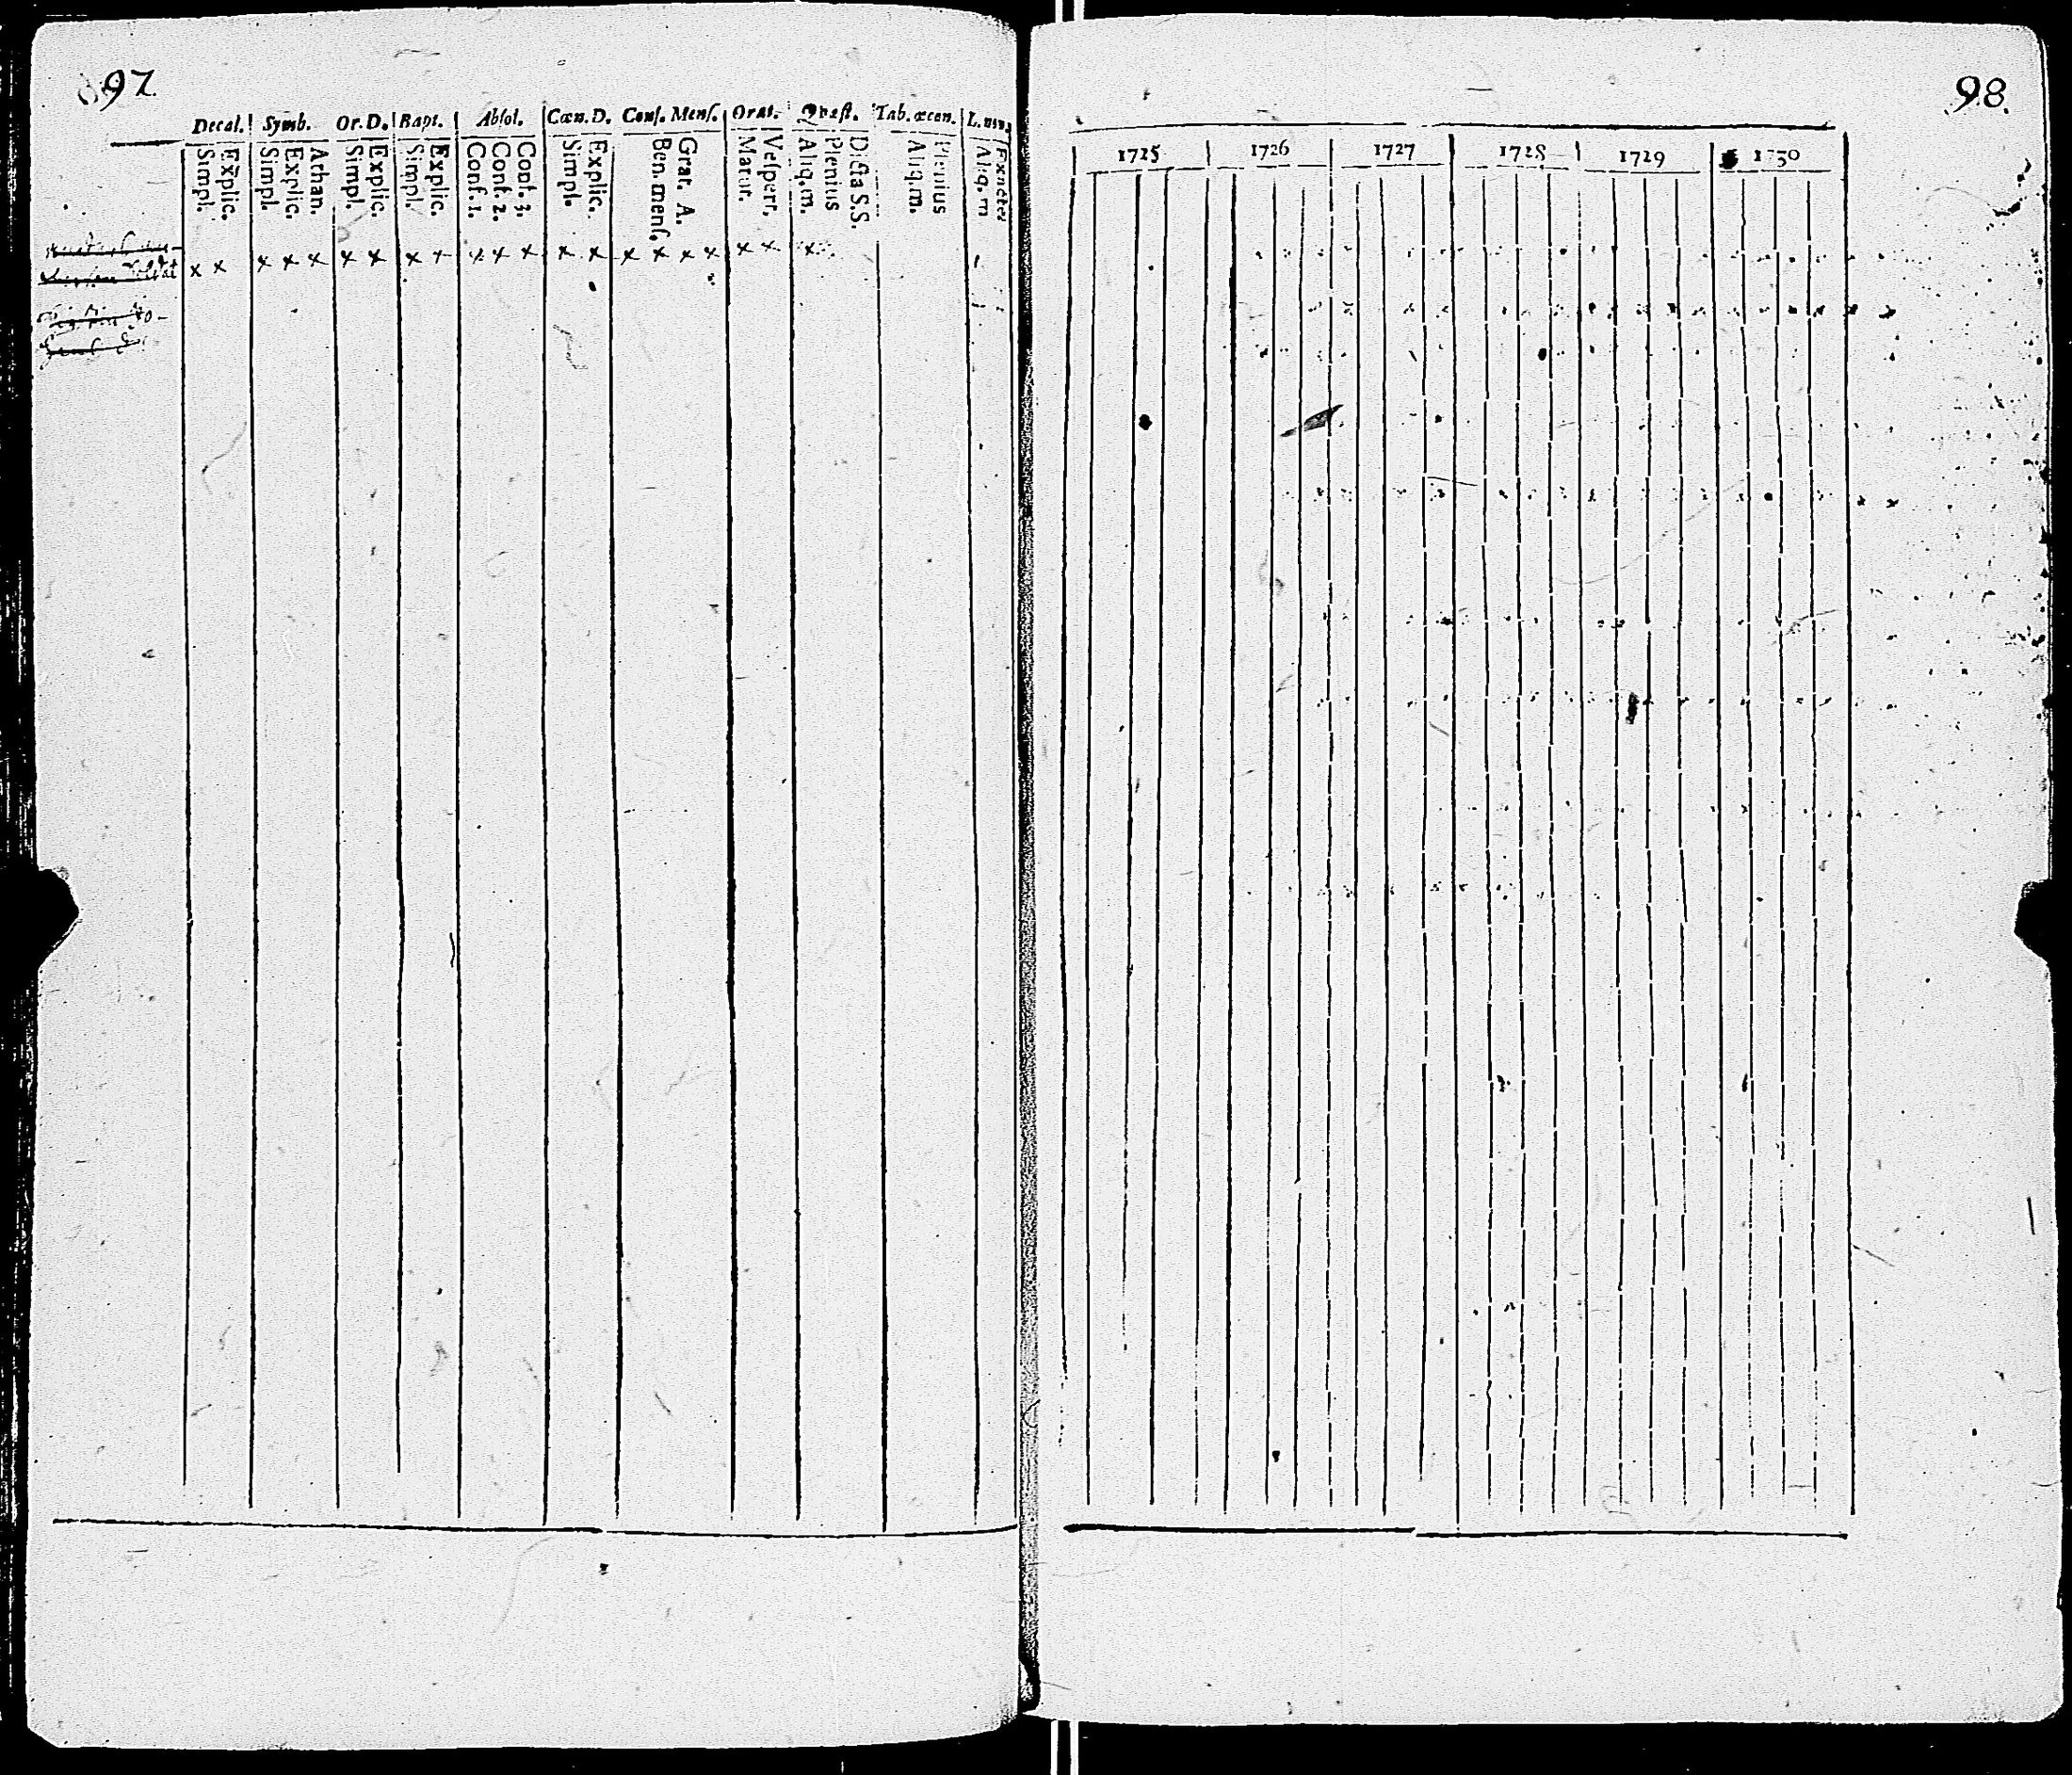 97.
Decal. Symb. Or.D. Bapt. Absol. Cœn.D. Conf. Mens. Orat. Quæst. Tab. œcon.
Simpl. Explic. Simpl. Explic. Athan. Simpl. Explic. Simpl. Explic. Conf. 1. Conf. 2. Conf. 3. Simpl. Explic. Ben. mens. Grat. A. Matut. Vespert. Aliq.m. Plenius Dicta S.S. Aliq.m. Plenius Aliq. m
x x x x x x x x x x x x x x x x x x x x x
98.
1725 1726 1727 1728 1729 1730